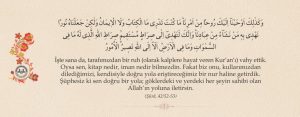 وَكَذٰلِكَ اَوْحَيْنَٓا اِلَيْكَ رُوحًا مِنْ اَمْرِنَاۜ مَا كُنْتَ تَدْر۪ي مَا الْكِتَابُ وَلَا الْا۪يمَانُ وَلٰكِنْ جَعَلْنَاهُ نُورًا
نَهْد۪ي بِه۪ مَنْ نَشَٓاءُ مِنْ عِبَادِنَاۜ وَاِنَّكَ لَتَهْد۪ٓي اِلٰى صِرَاطٍ مُسْتَق۪يمٍ صِرَاطِ اللّٰهِ الَّذ۪ي لَهُ مَا فِي
السَّمٰوَاتِ وَمَا فِي الْاَرْضِۜ اَلَٓا اِلَى اللّٰهِ تَص۪يرُ الْاُمُورُ
İşte sana da, tarafımızdan bir ruh (olarak kalplere hayat veren Kur'an'ı) vahy ettik.
Oysa sen, kitap nedir, iman nedir bilmezdin. Fakat biz onu, kullarımızdan
dilediğimizi, kendisiyle doğru yola eriştireceğimiz bir nur haline getirdik.
Şüphesiz ki sen doğru bir yola; göklerdeki ve yerdeki her şeyin sahibi olan
Allah'ın yoluna iletirsin.
(Şûrâ, 42/52-53)